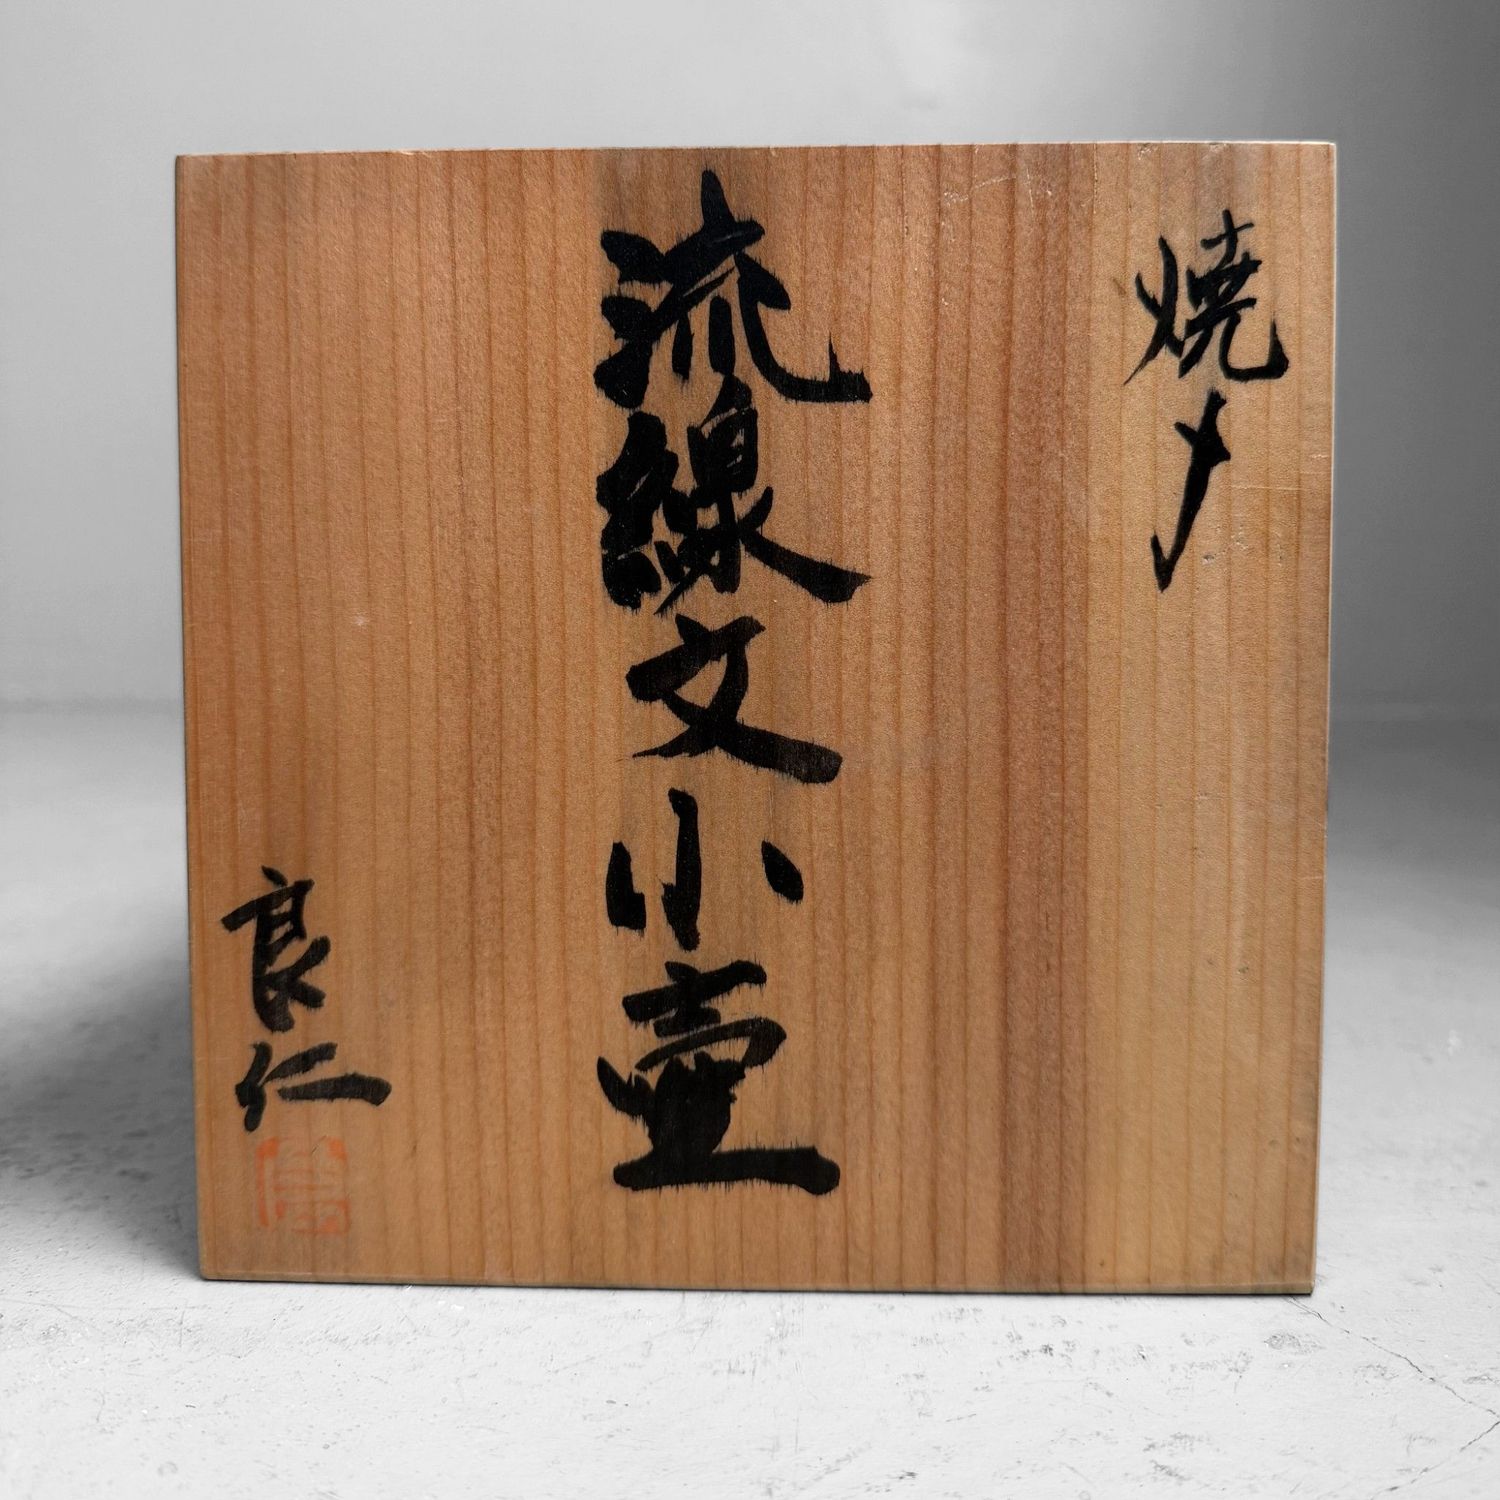 焼〆
流線文小壷
良仁